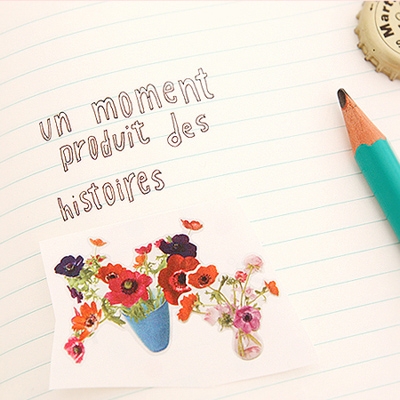 un moment
produit des
histoires
Mart